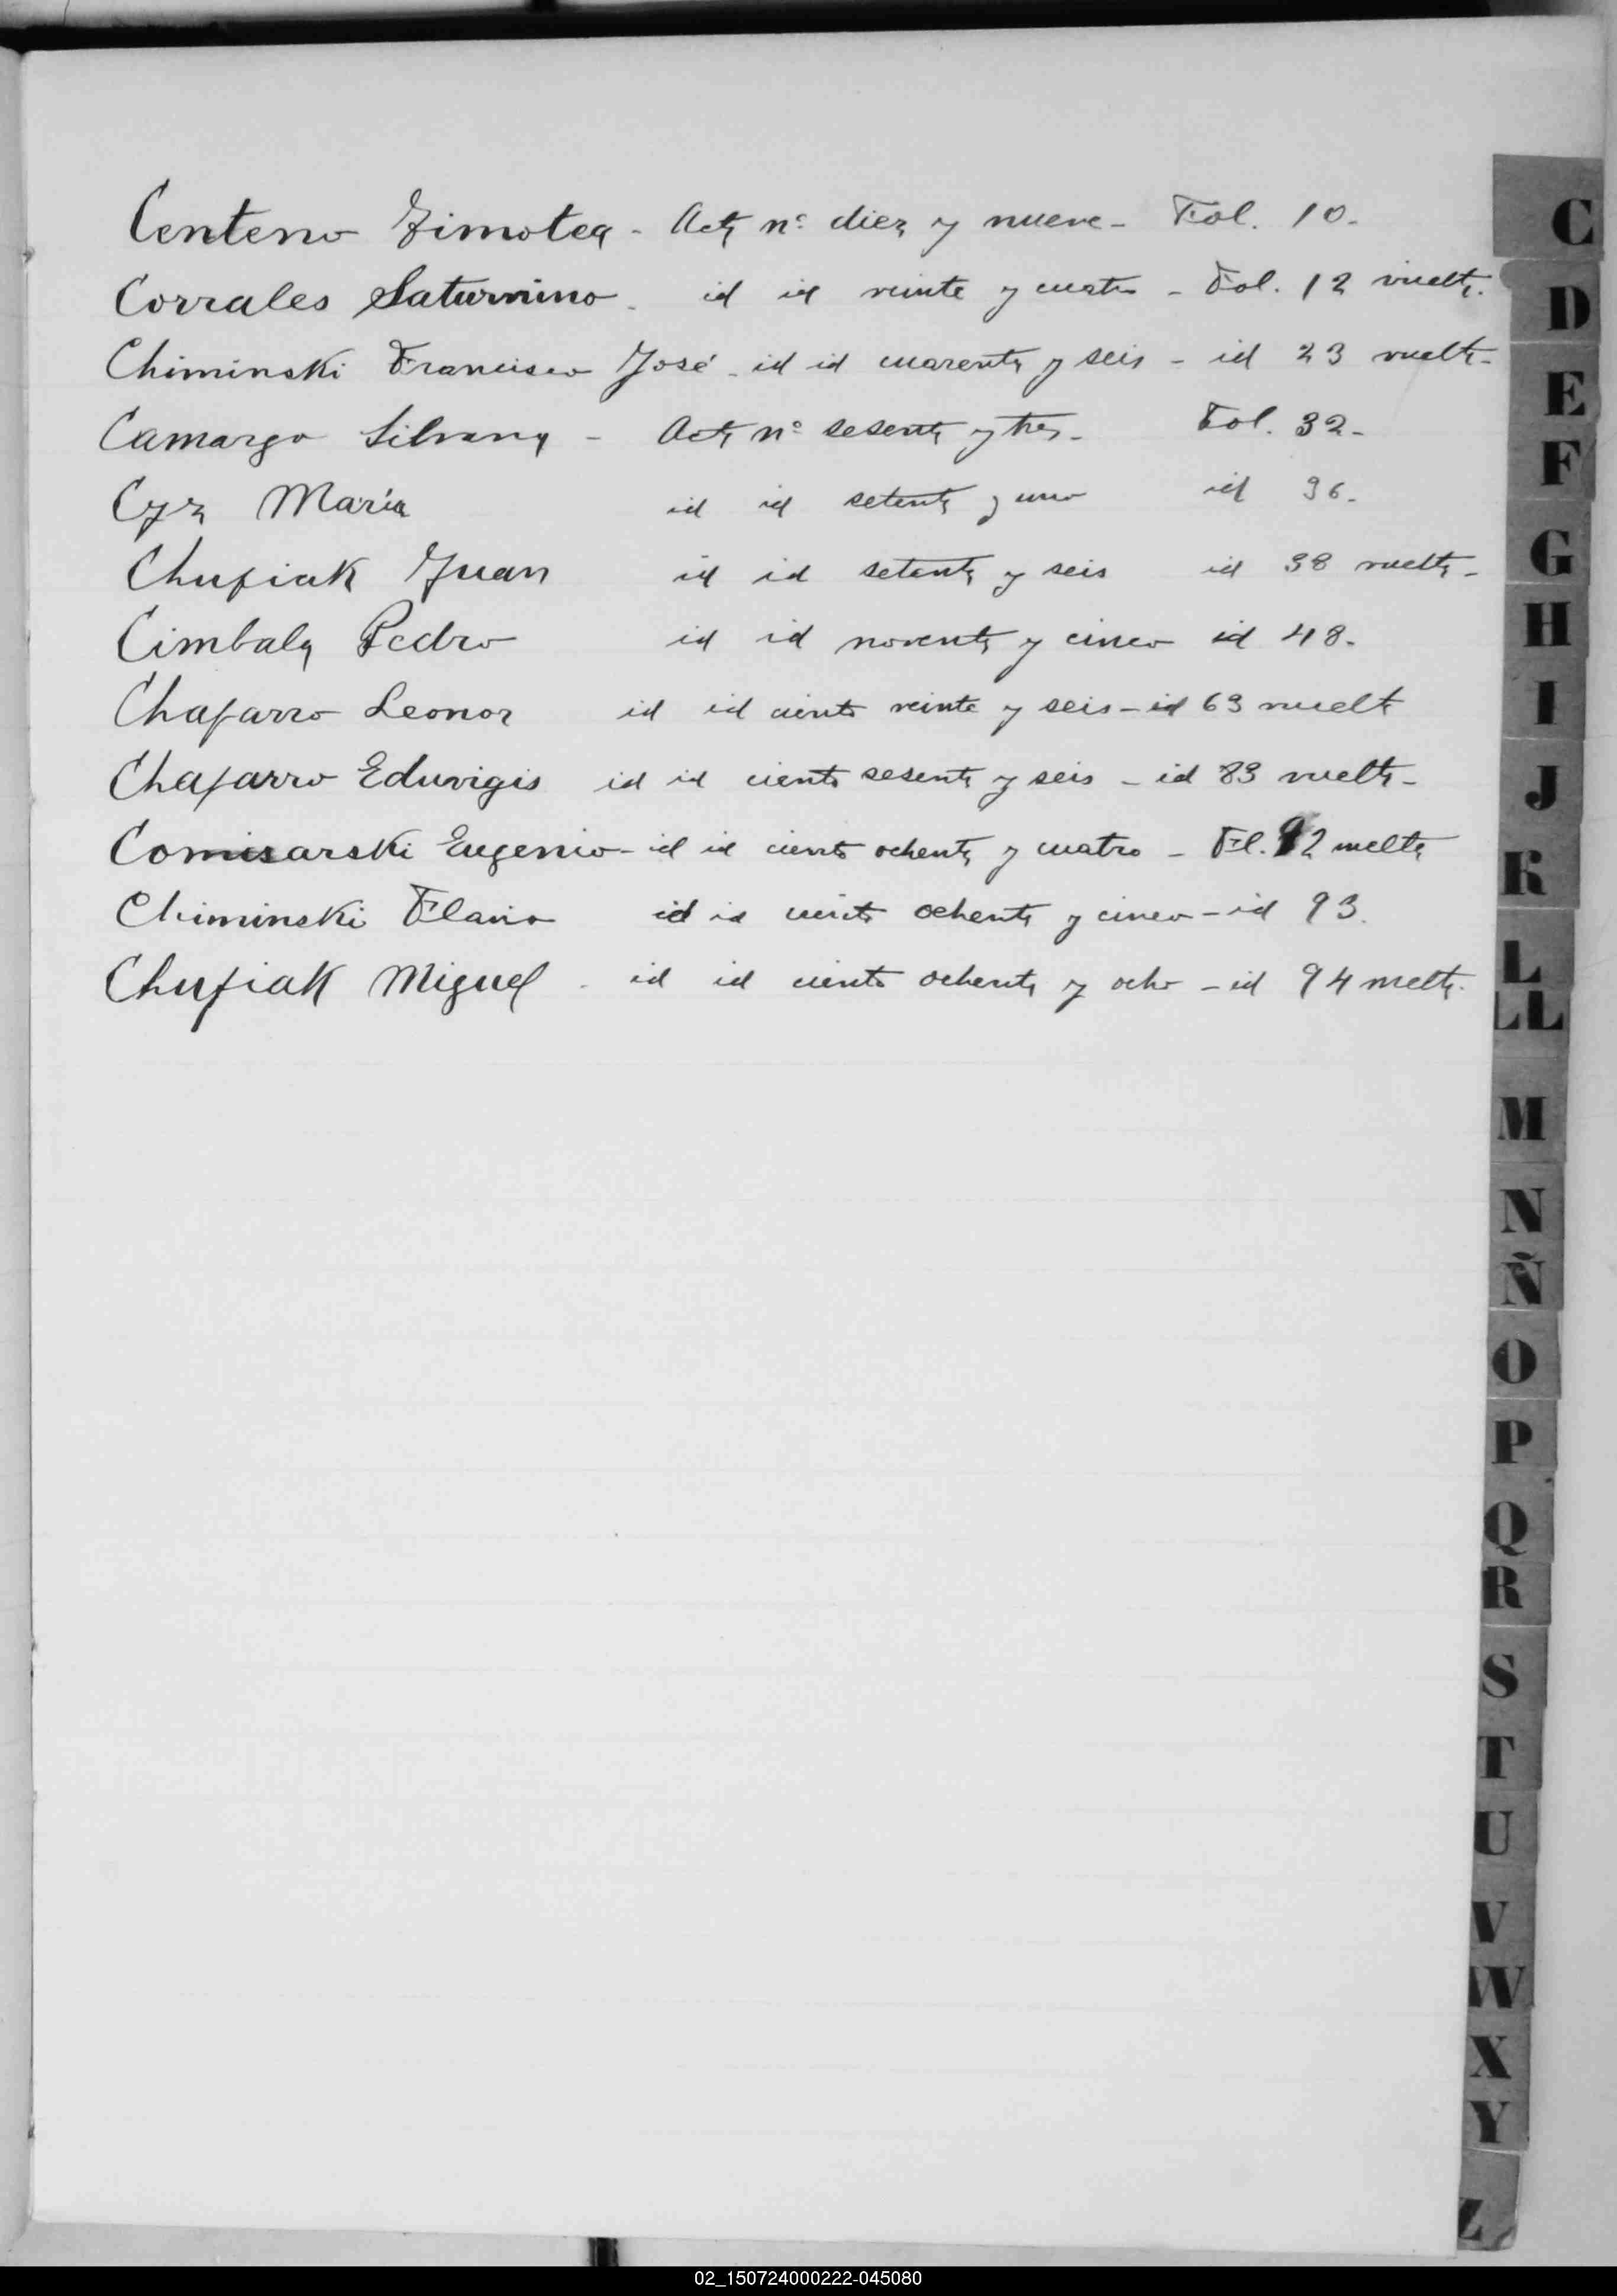 Centeno Timotea - Acta nº diez y nueve - Fol. 10.
Corrales Saturnino - id id veinte y cuatro - Fol. 12 vuelta.
Chiminski Francisco José - id id cuarenta y seis - id 23 vuelta -
Camargo Silvana - Acta nº sesenta y tres - Fol. 32 -
Cyz María id id setenta y uno id 36 -
Chupiak Juan id id setenta y seis id 38 vuelta -
Cimbala Pedro id id noventa y cinco id 48 -
Chaparro Leonor id id ciento veinte y seis - id 63 vuelta
Chaparro Eduvigis id id ciento sesenta y seis - id 83 vuelta -
Comisarski Eugenio - id id ciento ochenta y cuatro - Fl. 92 vuelta
Chiminski Flavio id id ciento ochenta y cinco - id 93.
Chupiak Miguel - id id ciento ochenta y ocho - id 94 vuelta.
C
D
E
F
G
H
I
J
K
L
LL
M
N
Ñ
O
P
Q
R
S
T
U
V
W
X
Y
Z
02_150724000222-045080